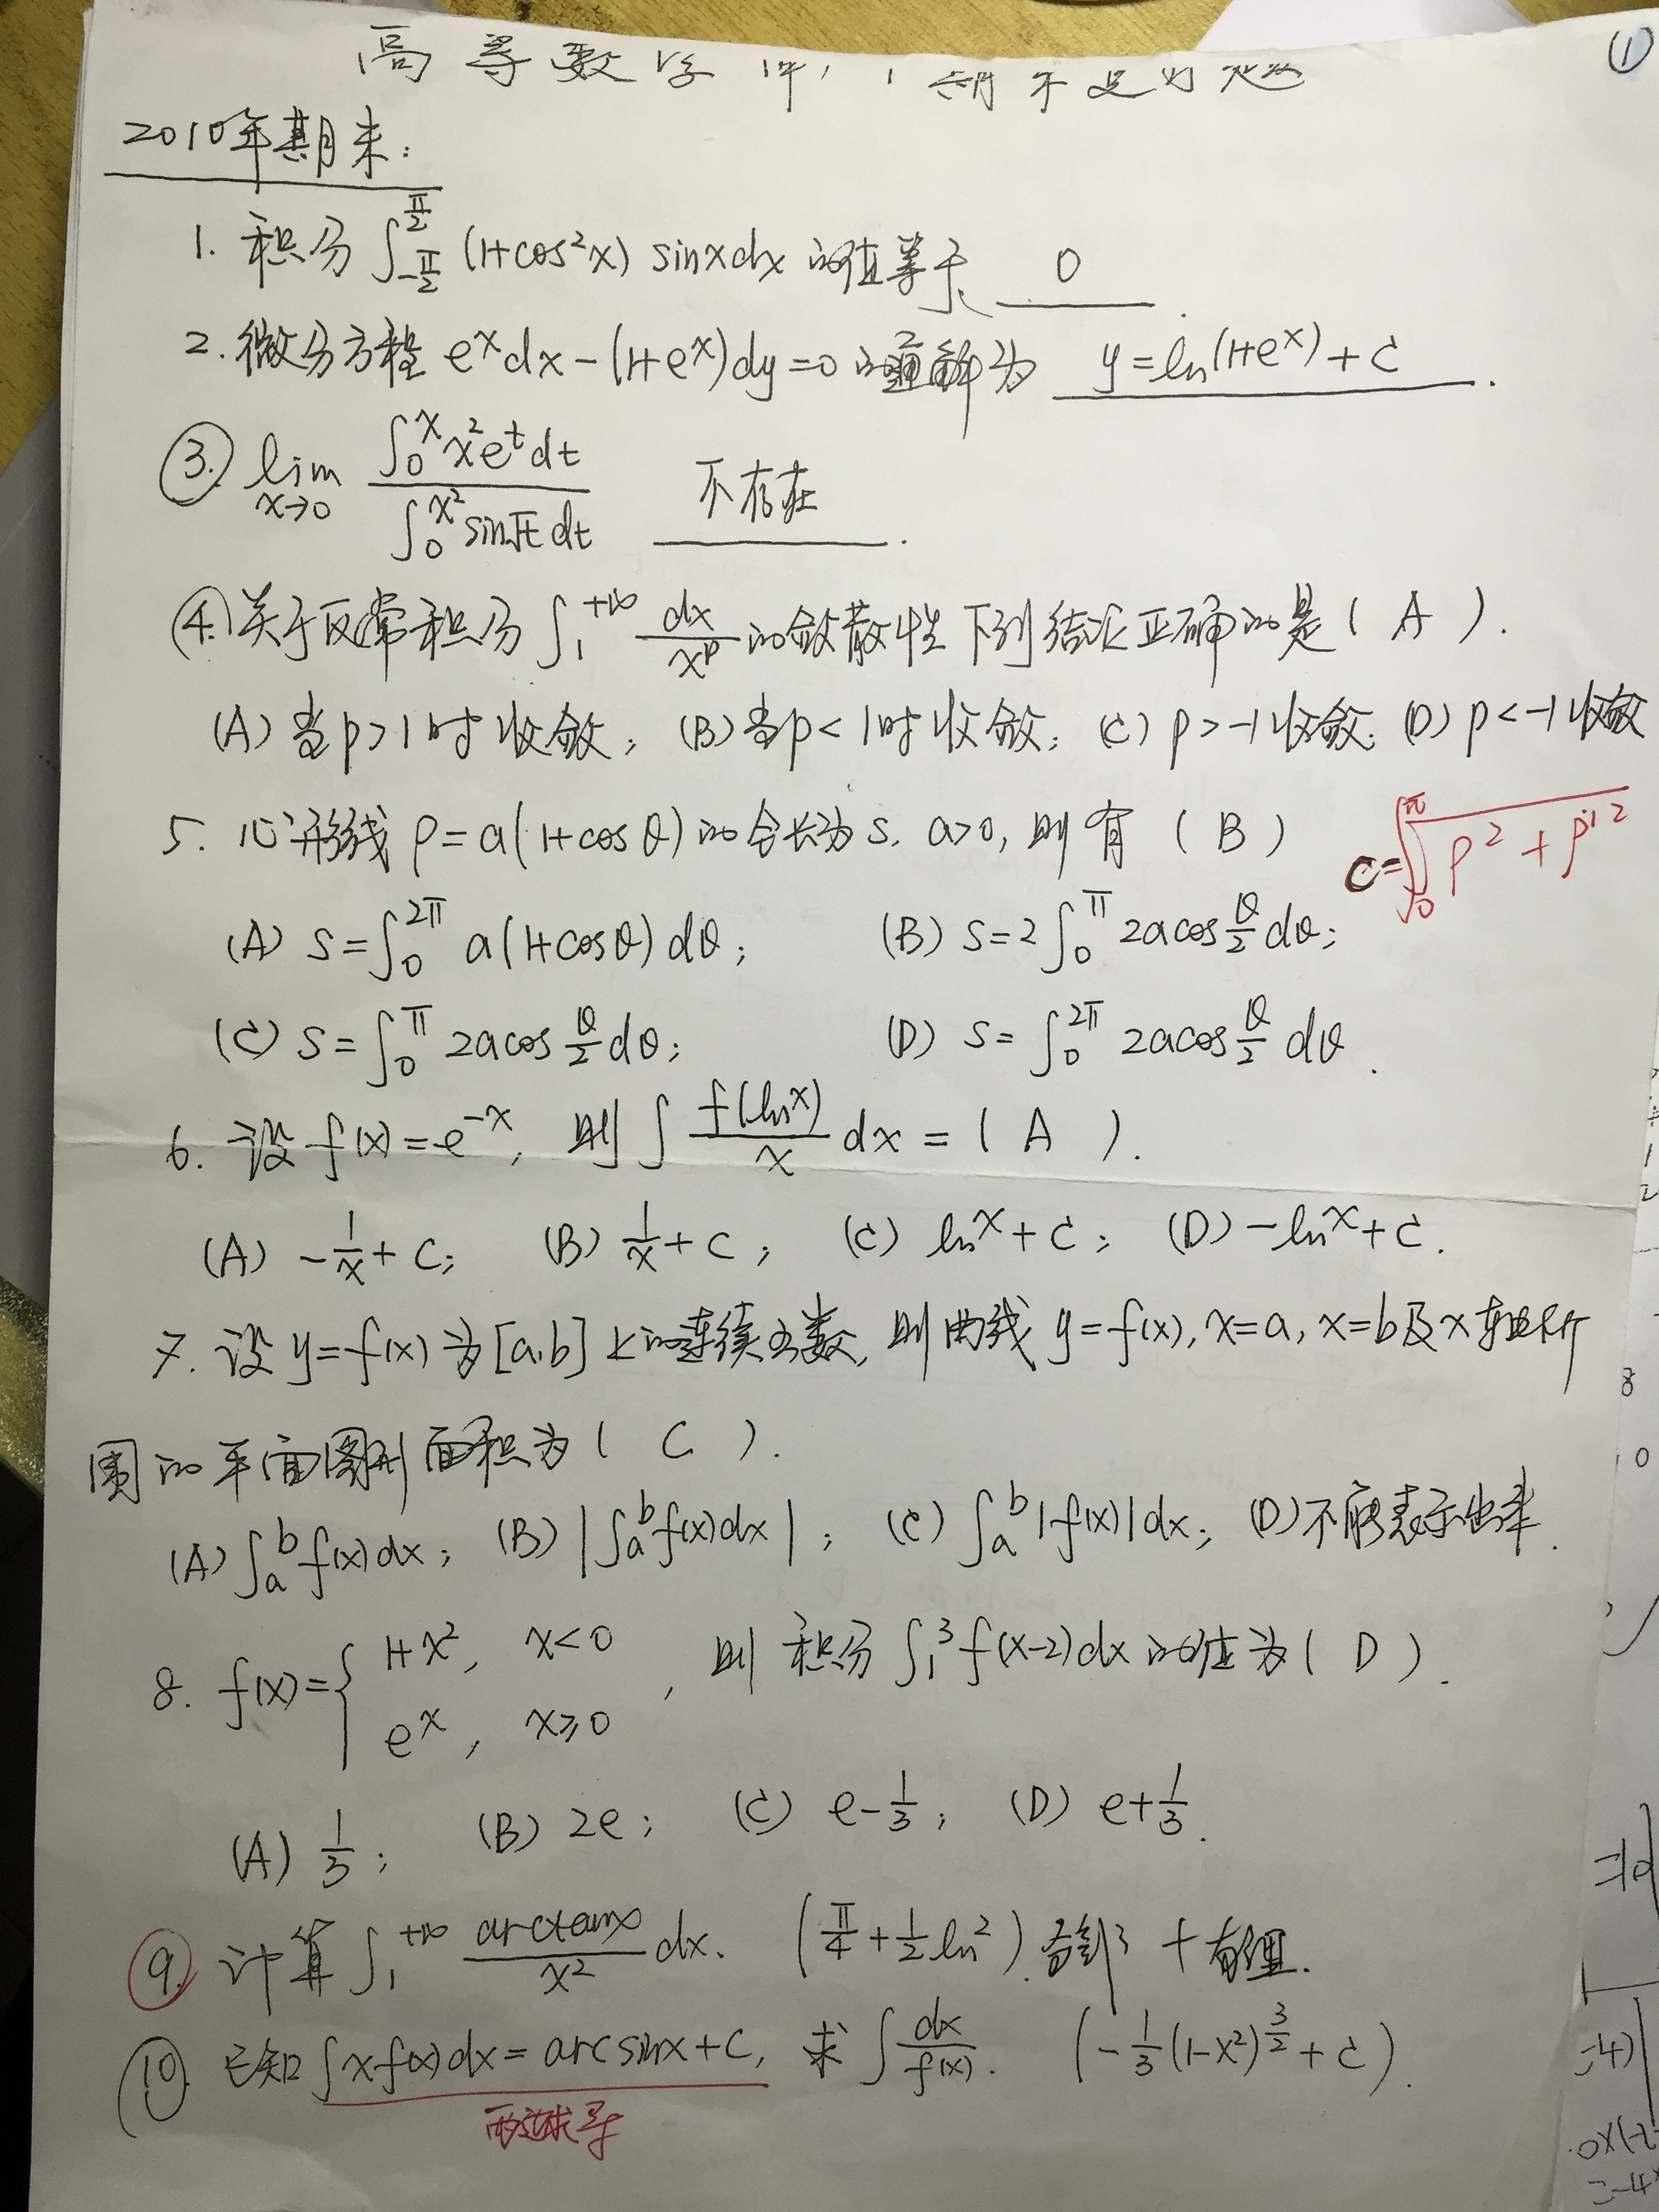 ①
高等数学 期末
2010年期末:
1. 积分 ∫_{-π/2}^{π/2} (1+cos²x) sinxdx 的值等于 0 .
2. 微分方程 e^x dx-(1+e^x)dy=0 的通解为 y=ln(1+e^x)+C .
③. lim_{x→0} ∫_0^x x²e^t dt / ∫_0^{x²} sin√t dt 不存在 .
④. 关于反常积分 ∫_1^{+∞} dx/x^p 的敛散性下列结论正确的是 ( A ).
(A) 当p>1时收敛; (B) 当p<1时收敛; (C) p>-1收敛; (D) p<-1收敛
5. 心形线 ρ=a(1+cosθ) 的全长为s. a>0, 则有 ( B )
C=∫_0^π √(ρ²+ρ'²)
(A) s=∫_0^{2π} a(1+cosθ)dθ; (B) s=2∫_0^π 2acos θ/2 dθ;
(C) s=∫_0^π 2acos θ/2 dθ; (D) s=∫_0^{2π} 2acos θ/2 dθ.
6. 设 f(x)=e^{-x}, 则 ∫ f(lnx)/x dx = ( A ).
(A) -1/x+C; (B) 1/x+C; (C) lnx+C; (D) -lnx+C.
7. 设 y=f(x) 为 [a,b] 上的连续函数, 则曲线 y=f(x), x=a, x=b及x轴所
围的平面图形面积为 ( C ).
(A) ∫_a^b f(x)dx; (B) |∫_a^b f(x)dx|; (C) ∫_a^b |f(x)|dx; (D) 不能表示出来.
8. f(x)={ 1+x², x<0
e^x, x≥0 , 则 积分 ∫_1^3 f(x-2)dx 的值为 ( D ).
(A) 1/3; (B) 2e; (C) e-1/3; (D) e+1/3.
⑨. 计算 ∫_1^{+∞} arctanx/x² dx. (π/4+1/2 ln2). 分部 + 有理.
⑩. 已知 ∫xf(x)dx=arcsinx+C, 求 ∫dx/f(x). (-1/3(1-x²)^{3/2}+C).
两边求导